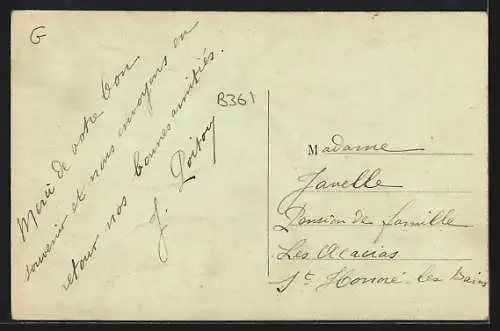 G
Merci de votre bon
souvenir et nous envoyons en
retour nos bonnes amitiés.
J. Poitou
B361
Madame
Javelle
Pension de famille
Les Acacias
St Honoré-les Bains